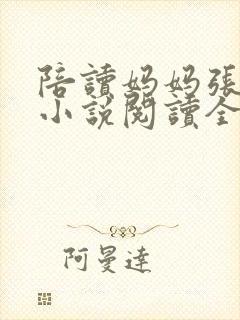 陪讀媽媽張
小說閱讀全
阿曼達